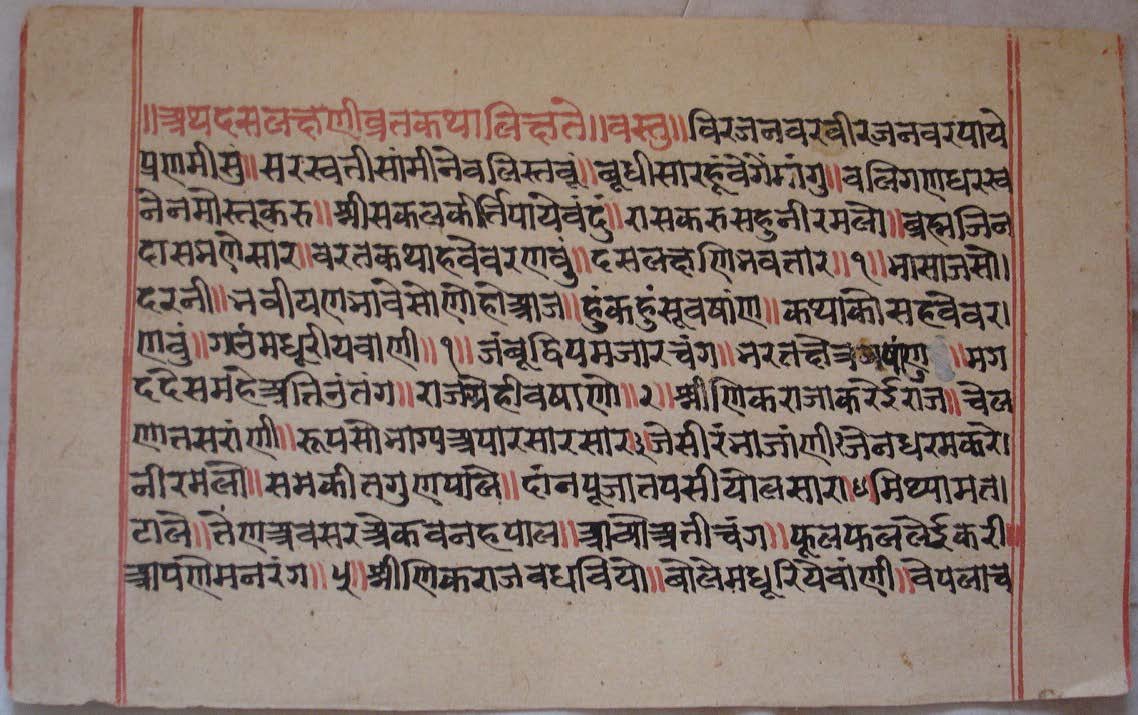 ॥अथदसलक्षणीव्रतकथालिक्षते॥वस्तु॥विरजनवरवीरजनवरपाये
प्रणमीसुं॥सरस्वतीसांमीनेवलिस्तवूं॥बूधीसारहूंवेगेंमांगु॥वलिगणधरस्व
नेनमोस्तुकरु॥श्रीसकलकीर्त्तिपायेवंदुं॥रासकरुसहुनीरमलो॥ब्रह्मजिन
दासभणेसार॥वरतकथाहवेवरणवुं॥दसलक्षणिभवतार॥१॥भासाजसो।
दरनी॥भवीयणभावेसोणोहोआज॥हुंकहुंसूवषांण॥कथाकोसहवेवर।
णवुं॥गर्जमधूरीयवाणी॥१॥जंबूद्विपमजारचंग॥भरतहो ॥मग
ददेसमंहेअतिनुंतंग॥राजग्रेहीवषाणो॥२॥श्रीणिकराजाकरेईराज॥चेल
णातसरांणी॥रूपसोभाग्यअपारसारसार३जेसीरंभाजांणी३जेनधरमकरे।
नीरमलो॥समकीतगुणपाले॥दांनपूजातपसीयोलसारा४मिथ्यामत।
टाले॥तेंणअवसरअेकवनहपाल॥आवोअतीचंग॥फूलफललेईकरी
आपणेमनरंग॥५॥श्रीणिकराजवधवियो॥बोलेमधूरियेवांणी॥वेपलाच